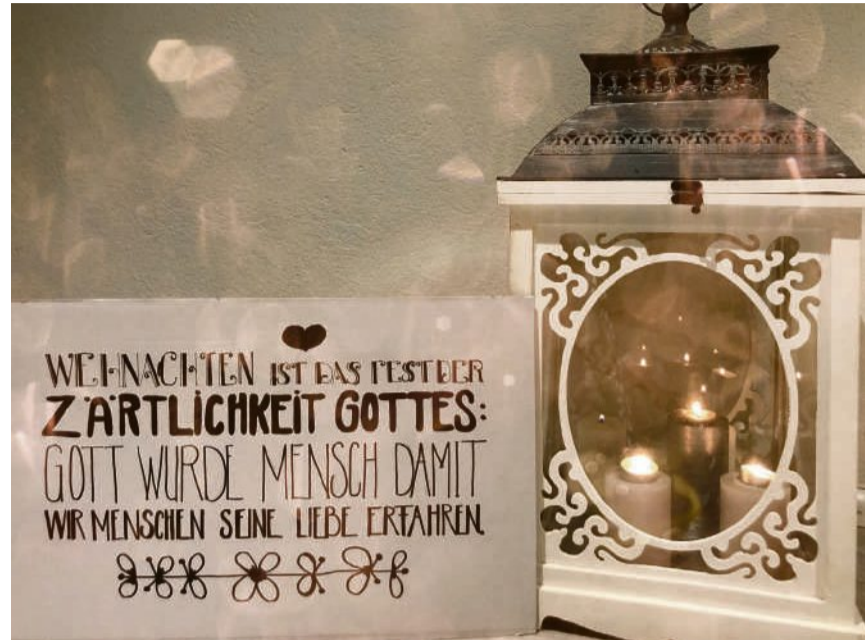 WEIHNACHTEN IST DAS FEST DER
ZÄRTLICHKEIT GOTTES:
GOTT WURDE MENSCH DAMIT
WIR MENSCHEN SEINE LIEBE ERFAHREN.